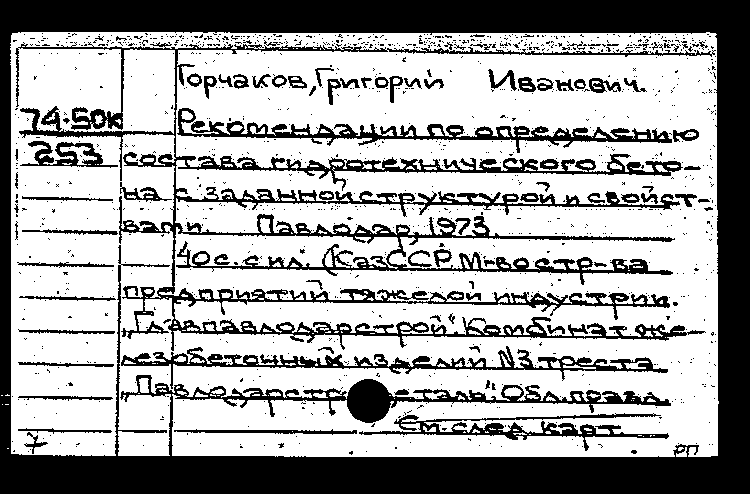 Горчаков, Григорий Иванович.
74-50к Рекомендации по определению
253 состава гидротехнического бето-
на с заданной структурой и свойст-
вами. Павлодар, 1973.
40 с. с ил. (КазССР. М-во стр-ва
предприятий тяжелой индустрии.
„Главпавлодарстрой“. Комбинат же-
лезобетонных изделий N3 треста
„Павлодарстр еталь“. Обл. правл.
См. след. карт.
7 РП